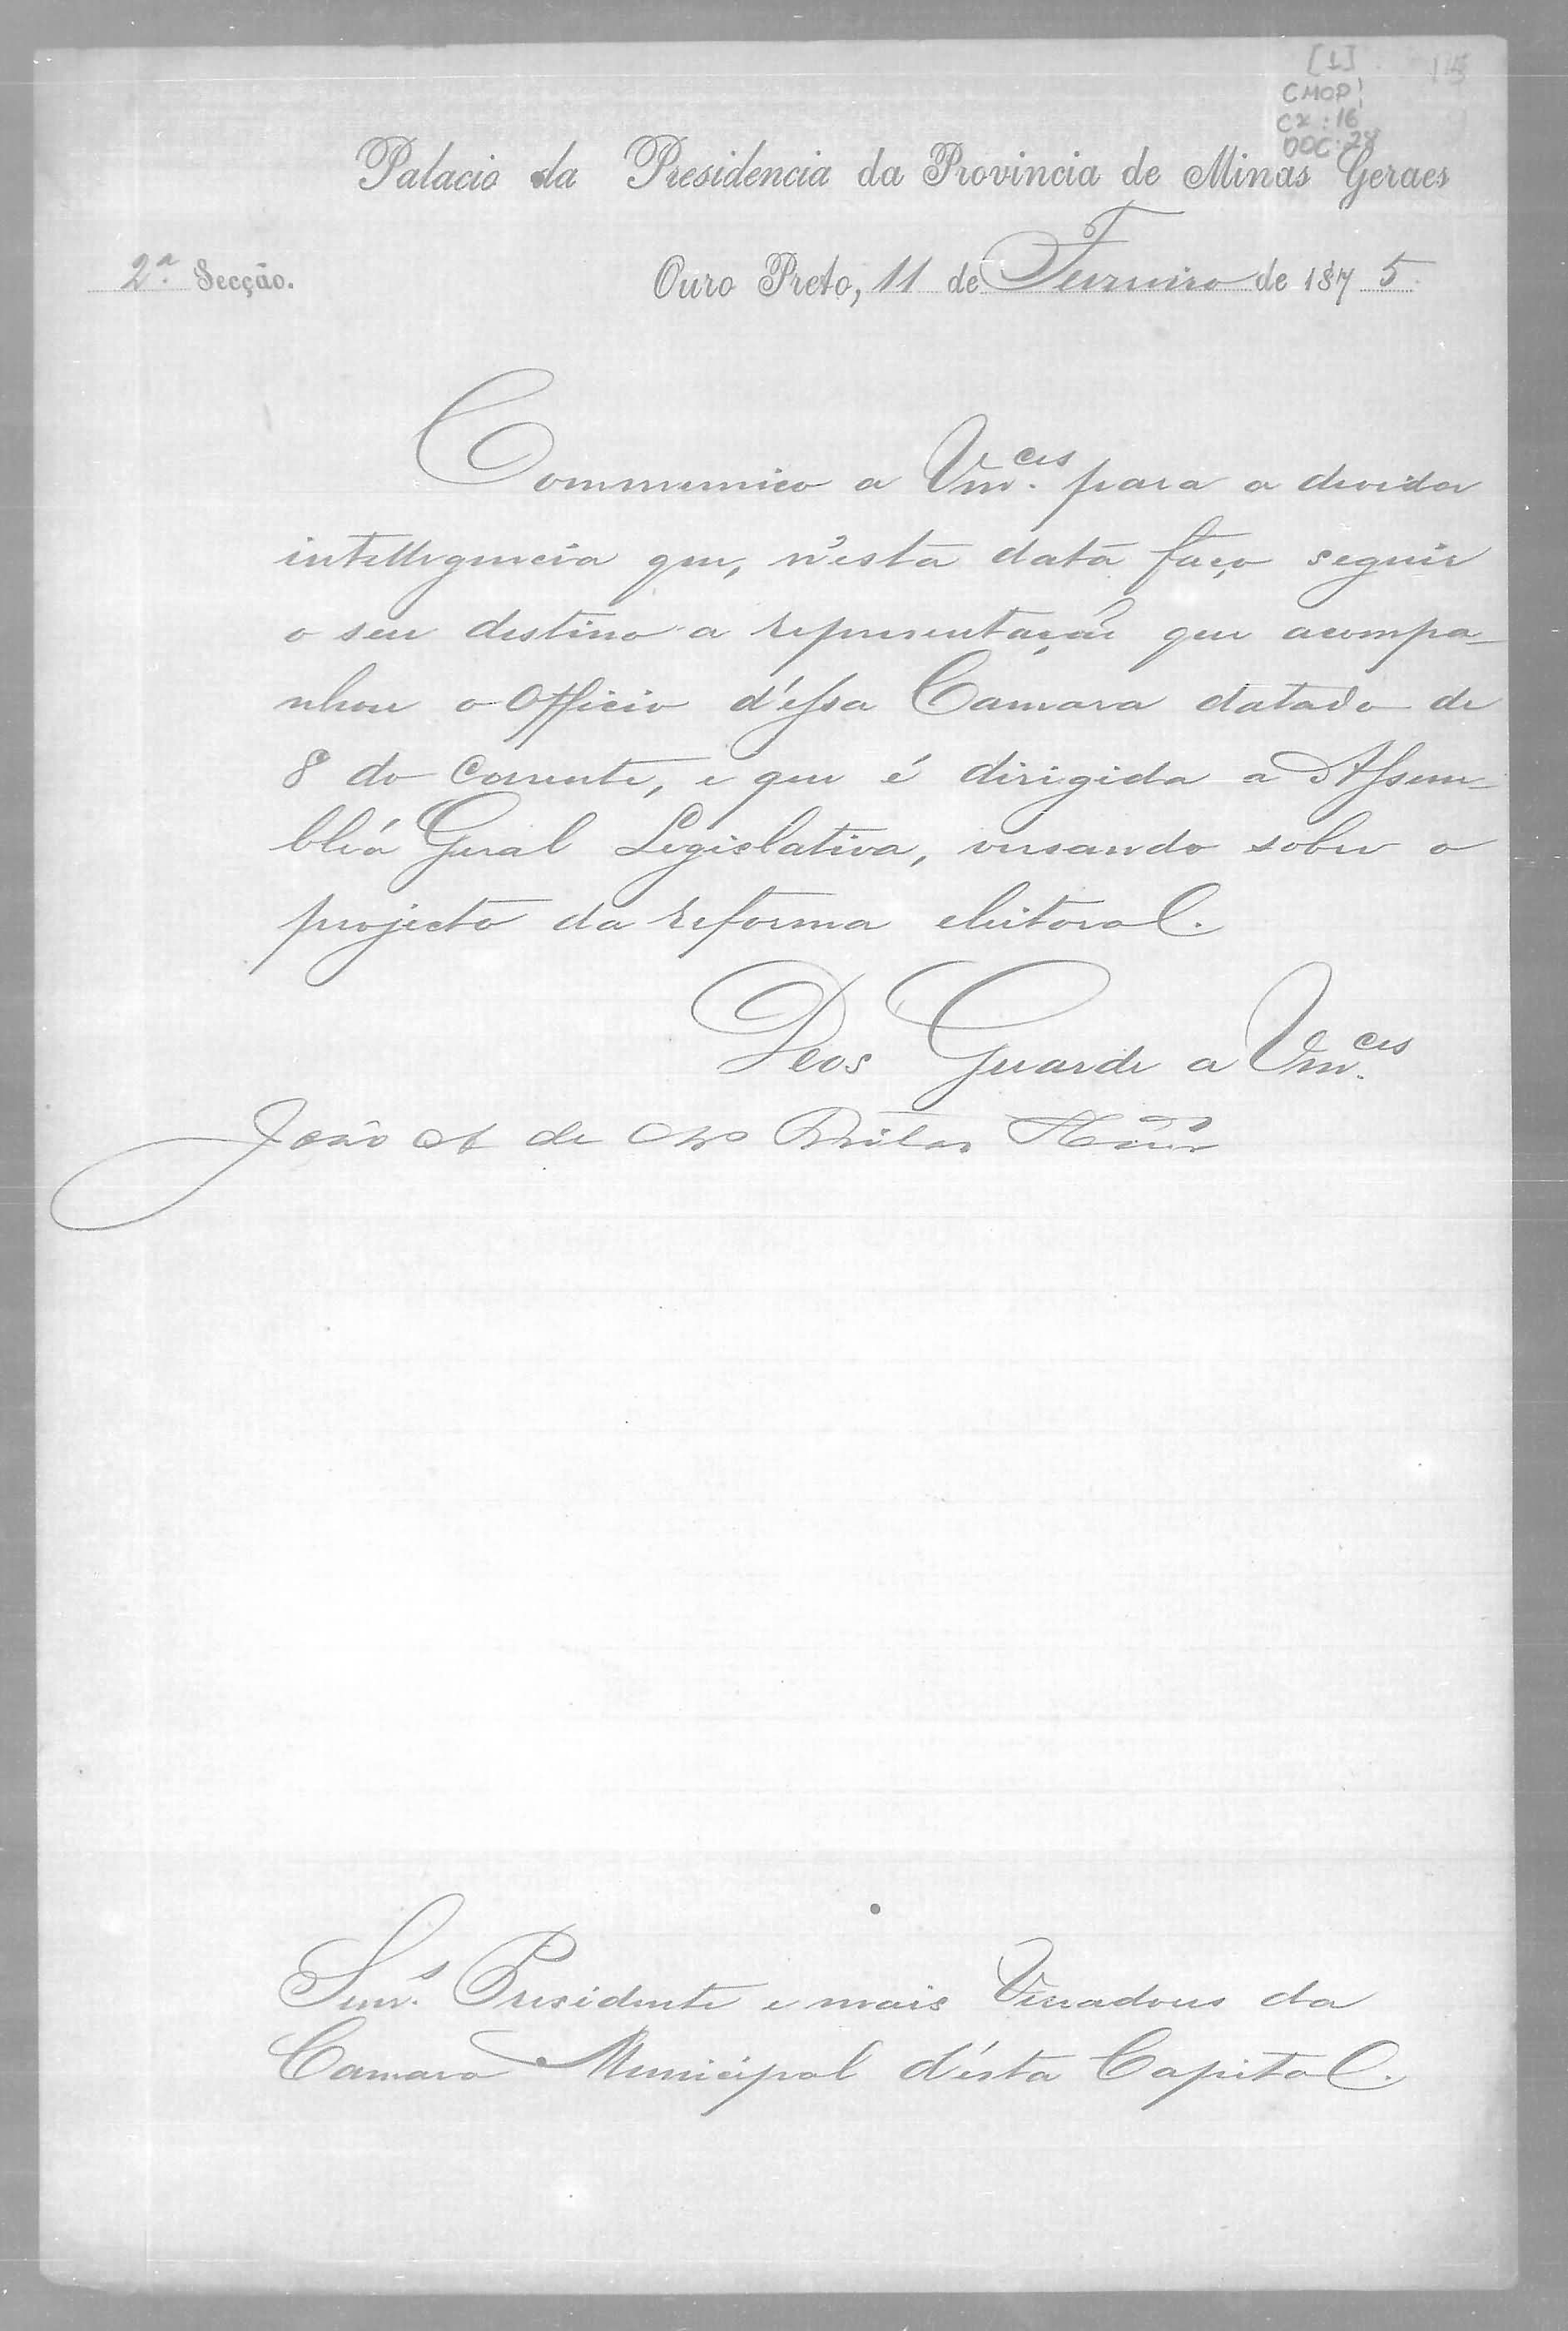 [1]
CMOP
CX: 16
DOC: 28
Palacio da Presidencia da Provincia de Minas Geraes
2ª Secção.
Ouro Preto, 11 de Fevereiro de 1875
Communico a Vm.ces para a devida
intelligencia que, n'esta data faço seguir
o seu destino a representação que acompa-
nhou o Officio d'essa Camara datado de
8 do corrente, e que é dirigida a Assem-
bléa Geral Legislativa, versando sobre o
projecto da reforma eleitoral.
Deos Guarde a Vm.ces
João A de
Snr.s Presidente e mais Vereadores da
Camara Municipal d'ésta Capital.